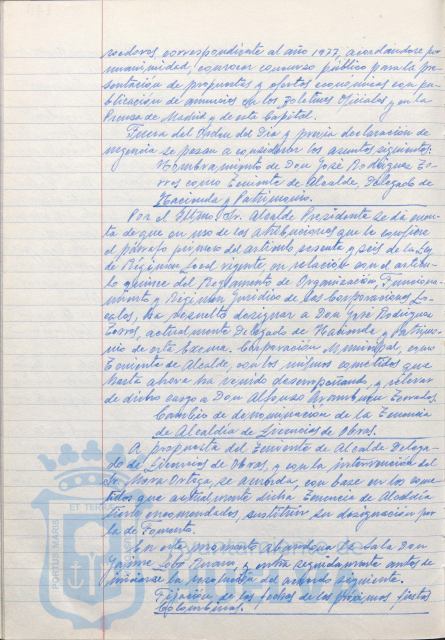 correspondiente al año 1977, acordándose por
unanimidad, convocar concurso público para la pre-
sentación de propuestas y ofertas económicas con pu-
blicación de anuncios en los Boletines Oficiales y en la
Prensa de Madrid y de esta Capital.
Fuera del Orden del Día y previa declaración de
urgencia se pasan a considerar los asuntos siguientes:
Nombramiento de Don José Rodríguez To-
rres como Teniente de Alcalde, Delegado de
Hacienda y Patrimonio.
Por el Iltmo. Sr. Alcalde Presidente se da cuen-
ta de que en uso de las atribuciones que le confiere
el párrafo primero del artículo sesenta y seis de la Ley
de Régimen Local vigente, en relación con el artícu-
lo quince del Reglamento de Organización, Funciona-
miento y Régimen Jurídico de las Corporaciones Lo-
cales, ha resuelto designar a Don José Rodríguez
Torres, actualmente Delegado de Hacienda y Patrimo-
nio de esta Excma. Corporación Municipal, como
Teniente de Alcalde, con los mismos cometidos que
hasta ahora ha venido desempeñando, y relevar
de dicho cargo a Don Alfonso Aramburu Terrades.
Cambio de denominación de la Tenencia
de Alcaldía de Licencias de Obras.
A propuesta del Teniente de Alcalde Delega-
do de Licencias de Obras, y con la intervención del
Sr. Mora Ortega, se acuerda, con base en los come-
tidos que actualmente dicha Tenencia de Alcaldía
tiene encomendados, sustituir su designación por
la de Fomento.
En este momento abandona la Sala Don
Jaime y entra seguidamente antes de
iniciarse la resolución del acuerdo siguiente.
Fijación de las fechas de las próximas fiestas
Colombinas.
PORTUS MARIS
ET TERRAE